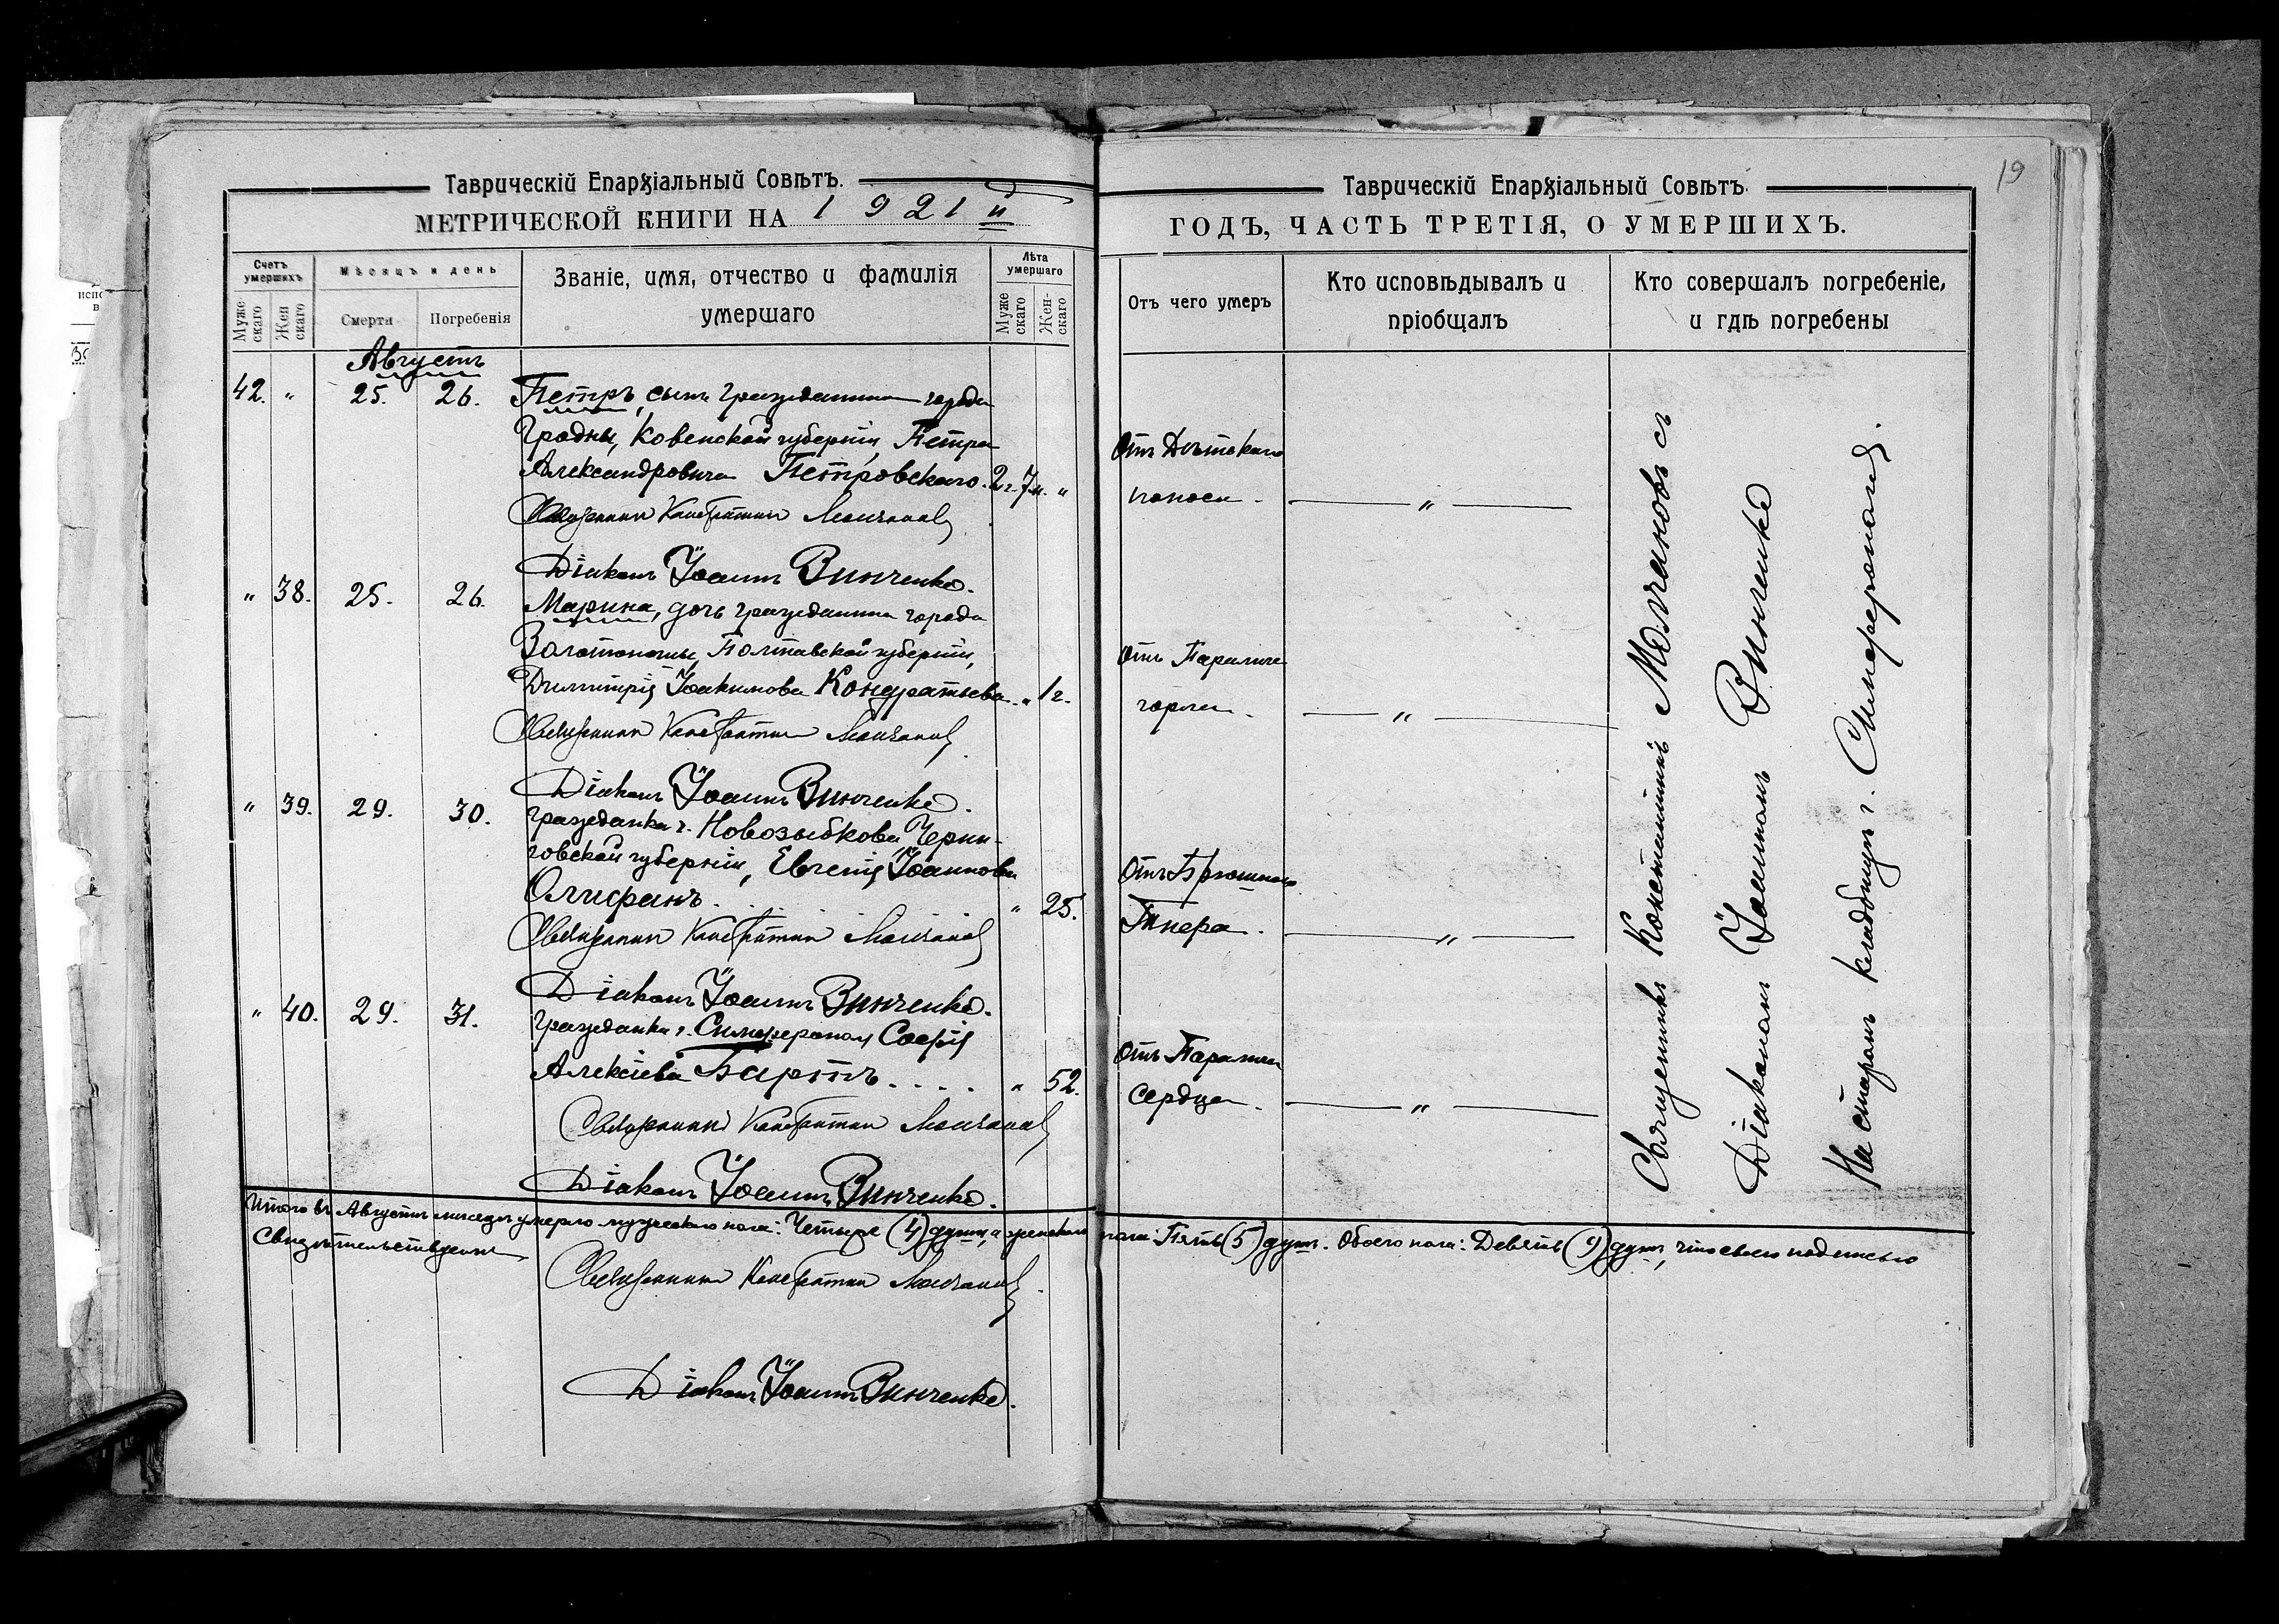 Таврическій Епархіальный Совѣтъ.
МЕТРИЧЕСКОЙ КНИГИ НА 1921й
Счетъ умершихъ
Мужескаго
Женскаго
Мѣсяцъ и день
Смерти
Погребенія
Званіе, имя, отчество и фамилія
умершаго
Лѣта умершаго
Мужескаго
Женскаго
Августъ
42. " 25. 26. Петръ, сынъ гражданина города
Гродны, Ковенской губерніи, Петра
Александровича Петровскаго. 2г. 7м. "
Священникъ Константинъ Молчановъ
Діаконъ Іоаннъ Винченко.
" 38. 25. 26. Марина, дочь гражданина города
Золотоноши, Полтавской губерніи,
Димитрія Іоакимова Кондратьева. " 1г.
Священникъ Константинъ Молчановъ
Діаконъ Іоаннъ Винченко.
" 39. 29. 30. Гражданка г. Новозыбкова, Черни-
говской губерніи, Евгенія Іоаннова
Олифанъ. " 25.
Священникъ Константинъ Молчановъ
Діаконъ Іоаннъ Винченко.
" 40. 29. 31. Гражданка г. Симферополя Софія
Алексіева Бартъ. . . . . " 52.
Священникъ Константинъ Молчановъ
Діаконъ Іоаннъ Винченко.
Итого въ Августѣ мѣсяцѣ умерло мужескаго пола: Четыре (4) души, а женскаго
свидѣтельствуемъ
Священникъ Константинъ Молчановъ
Діаконъ Іоаннъ Винченко.
19
Таврическій Епархіальный Совѣтъ.
ГОДЪ, ЧАСТЬ ТРЕТІЯ, О УМЕРШИХЪ.
Отъ чего умеръ
Кто исповѣдывалъ и
пріобщалъ
Кто совершалъ погребеніе,
и гдѣ погребены
Отъ Дѣтскаго
поноса. "
Отъ Паралича
горла. "
Отъ Брюшного
Тифа. "
Отъ Паралича
сердца. "
Священникъ Константинъ Молчановъ съ
Діакономъ Іоанномъ Винченко
На старомъ кладбищѣ г. Симферополя.
пола: Пять (5) душъ. Обоего пола: Девять (9) душъ, что своею подписью